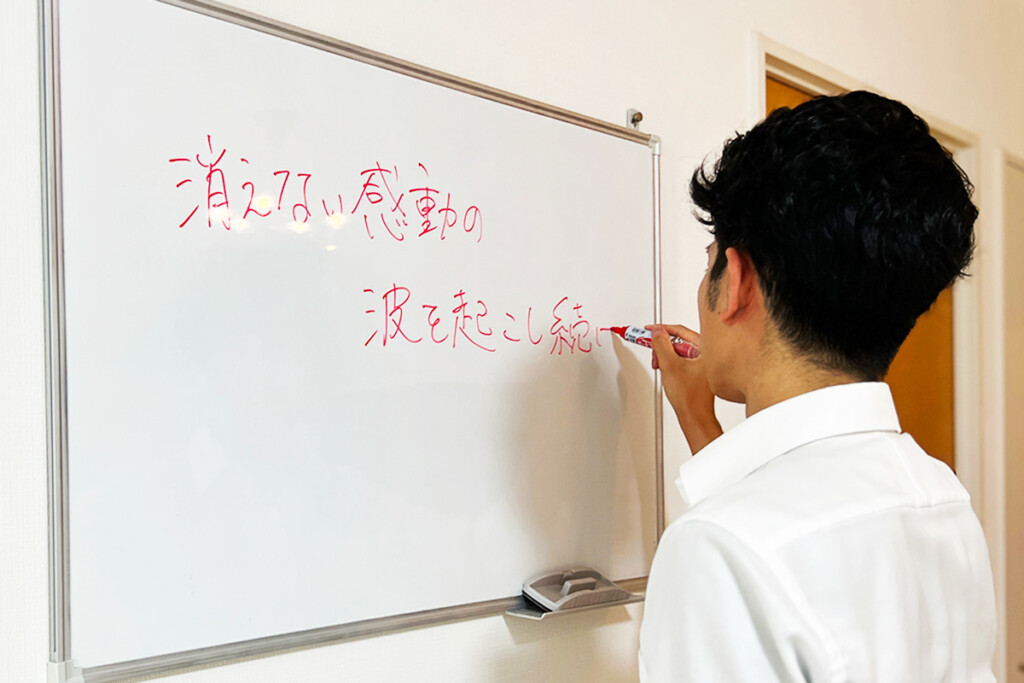 消えない感動の
波を起こし続